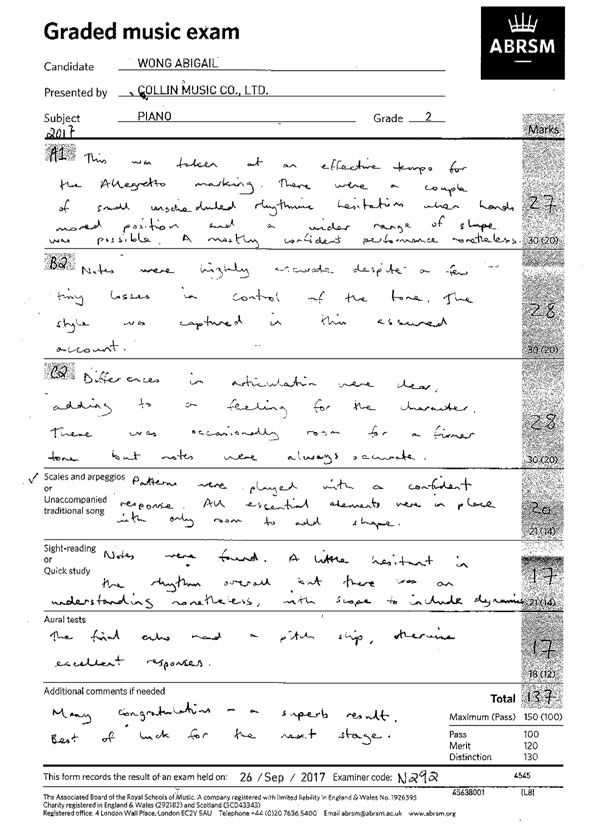 Graded music exam
ABRSM
Candidate WONG ABIGAIL
Presented by COLLIN MUSIC CO., LTD.
Subject PIANO Grade 2
2017 Marks
A1 This was taken at an effective tempo for
the Allegretto marking. There were a couple
of small unscheduled rhythmic hesitations when hands
moved position and a wider range of shape
was possible. A mostly confident performance nonetheless.
27
30 (20)
B2 Notes were highly accurate despite a few
tiny losses in control of the tone. The
style was captured in this assured
account.
28
30 (20)
C2 Differences in articulation were clear,
adding to a feeling for the character.
There was occasionally room for a firmer
tone but notes were always accurate.
28
30 (20)
✓ Scales and arpeggios
or
Unaccompanied
traditional song
Patterns were played with a confident
response. All essential elements were in place
with only room to add shape.
20
21 (14)
Sight-reading
or
Quick study
Notes were found. A little hesitant in
the rhythm overall but there was an
understanding nonetheless, with scope to include dynamics
17
21 (14)
Aural tests
The final echo had a pitch slip, otherwise
excellent responses.
17
18 (12)
Additional comments if needed
Many congratulations - a superb result.
Best of luck for the next stage.
Total 137
Maximum (Pass) 150 (100)
Pass 100
Merit 120
Distinction 130
This form records the result of an exam held on: 26 / Sep / 2017 Examiner code: N292 4545
45638001 (LB)
The Associated Board of the Royal Schools of Music. A company registered with limited liability in England & Wales No. 1926395
Charity registered in England & Wales (292182) and Scotland (SC043343)
Registered office: 4 London Wall Place, London EC2Y 5AU Telephone +44 (0)20 7636 5400 Email abrsm@abrsm.ac.uk www.abrsm.org